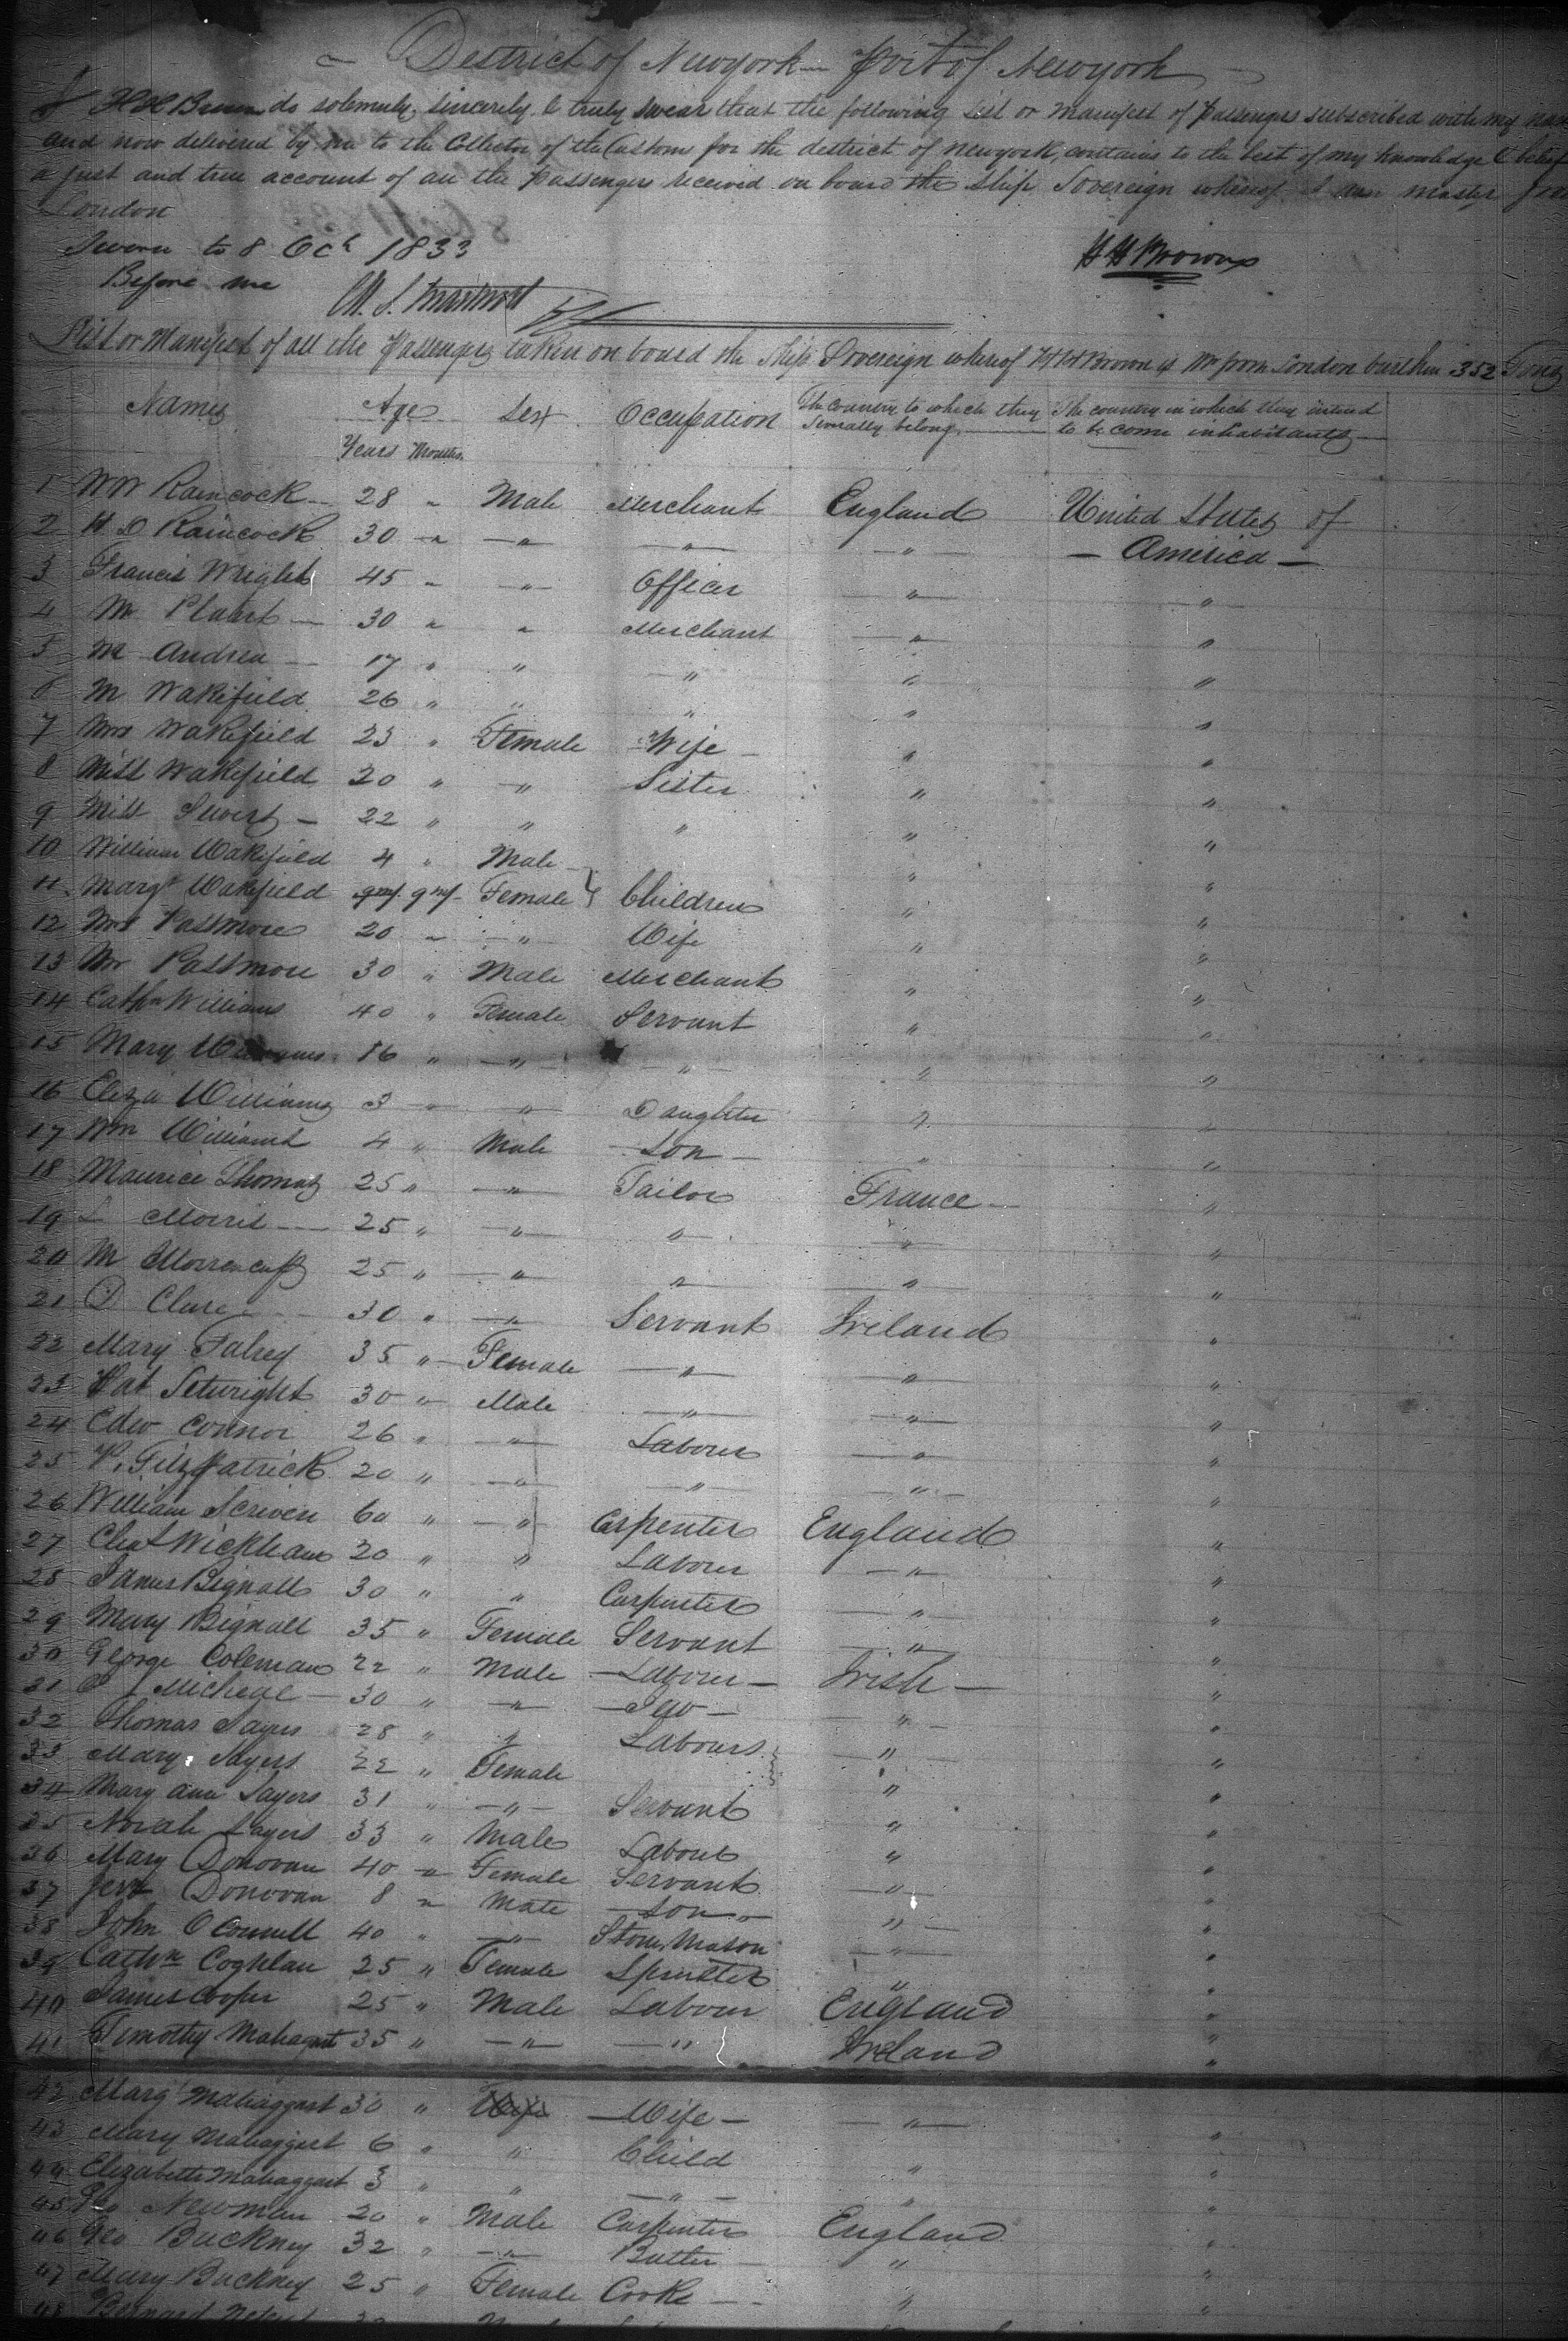 District of Newyork — Port of Newyork
I H H Brown do solemnly, sincerely & truly swear that the following List or Manifest of Passengers subscribed with my name
and now delivered by me to the Collector of the Customs for the district of newyork, contains to the best of my knowledge & belief
a just and true account of all the Passengers received on board the Ship Sovereign whereof I am master from
London
Sworn to 8 Oct 1833
Before me
H H Brown
List or Manifest of all the Passengers taken on board the Ship Sovereign whereof H H Brown is Mr from London burthen 352 Tons
Names Age Sex Occupation The country to which they severally belong. The country in which they intend to become inhabitants
Years Months
1 WW Raincock 28 " Male Merchant England United States of
2 H D Raincock 30 " " " " America
3 Francis Wright 45 " " Officer " "
4 Mr 30 " " Merchant " "
5 Mr Andrea 17 " " " " "
6 Mr Wakefield 26 " " " " "
7 Mrs Wakefield 23 " Female Wife " "
8 Miss Wakefield 20 " " Sister " "
9 Miss 22 " " " " "
10 William Wakefield 4 " Male " "
11 Margt Wakefield 9 Female } Children " "
12 Mrs Passmore 20 " " Wife " "
13 Mr Passmore 30 " Male Merchant " "
14 Cathn Williams 40 " Female Servant " "
15 Mary Williams 16 " " " " "
16 Eliza Williams 3 " " Daughter " "
17 Wm Williams 4 " Male Son " "
18 Maurice Thomas 25 " " Tailor France "
19 L Morris 25 " " " " "
20 M 25 " " " " "
21 D Clure 30 " " Servant Ireland "
22 Mary Falvey 35 " Female " " "
23 Pat Seturight 30 " Male " " "
24 Edw Connor 26 " " Labourer " "
25 P. Fitzpatrick 20 " " " " "
26 William Scriven 60 " " Carpenter England "
27 Chas Wickham 20 " " Labourer " "
28 James Bignall 30 " " Carpenter " "
29 Mary Bignall 35 " Female Servant " "
30 George Coleman 22 " Male Labourer Irish "
31 30 " " " "
32 Thomas Sayers 28 " " Labourers " "
33 Mary Sayers 22 " Female " "
34 Mary ann Sayers 31 " " Servant " "
35 Norah Sayers 33 " Male Labour " "
36 Mary Donovan 40 " Female Servant " "
37 Donovan 8 " Male Son " "
38 John O Connell 40 " " Stone Mason " "
39 Cathne Coghlan 25 " Female Spinster " "
40 James Cooper 25 " Male Labour England "
41 Timothy 35 " " " Ireland "
42 Margt Mahaggart 30 " Wife " "
43 Mary Mahaggart 6 " " Child " "
44 Elizabeth Mahaggart 3 " " " " "
45 Newman 20 " Male Carpenter England "
46 Geo Buckney 32 " " Butler " "
47 Mary Buckney 25 " Female Cook " "
48 Bernard